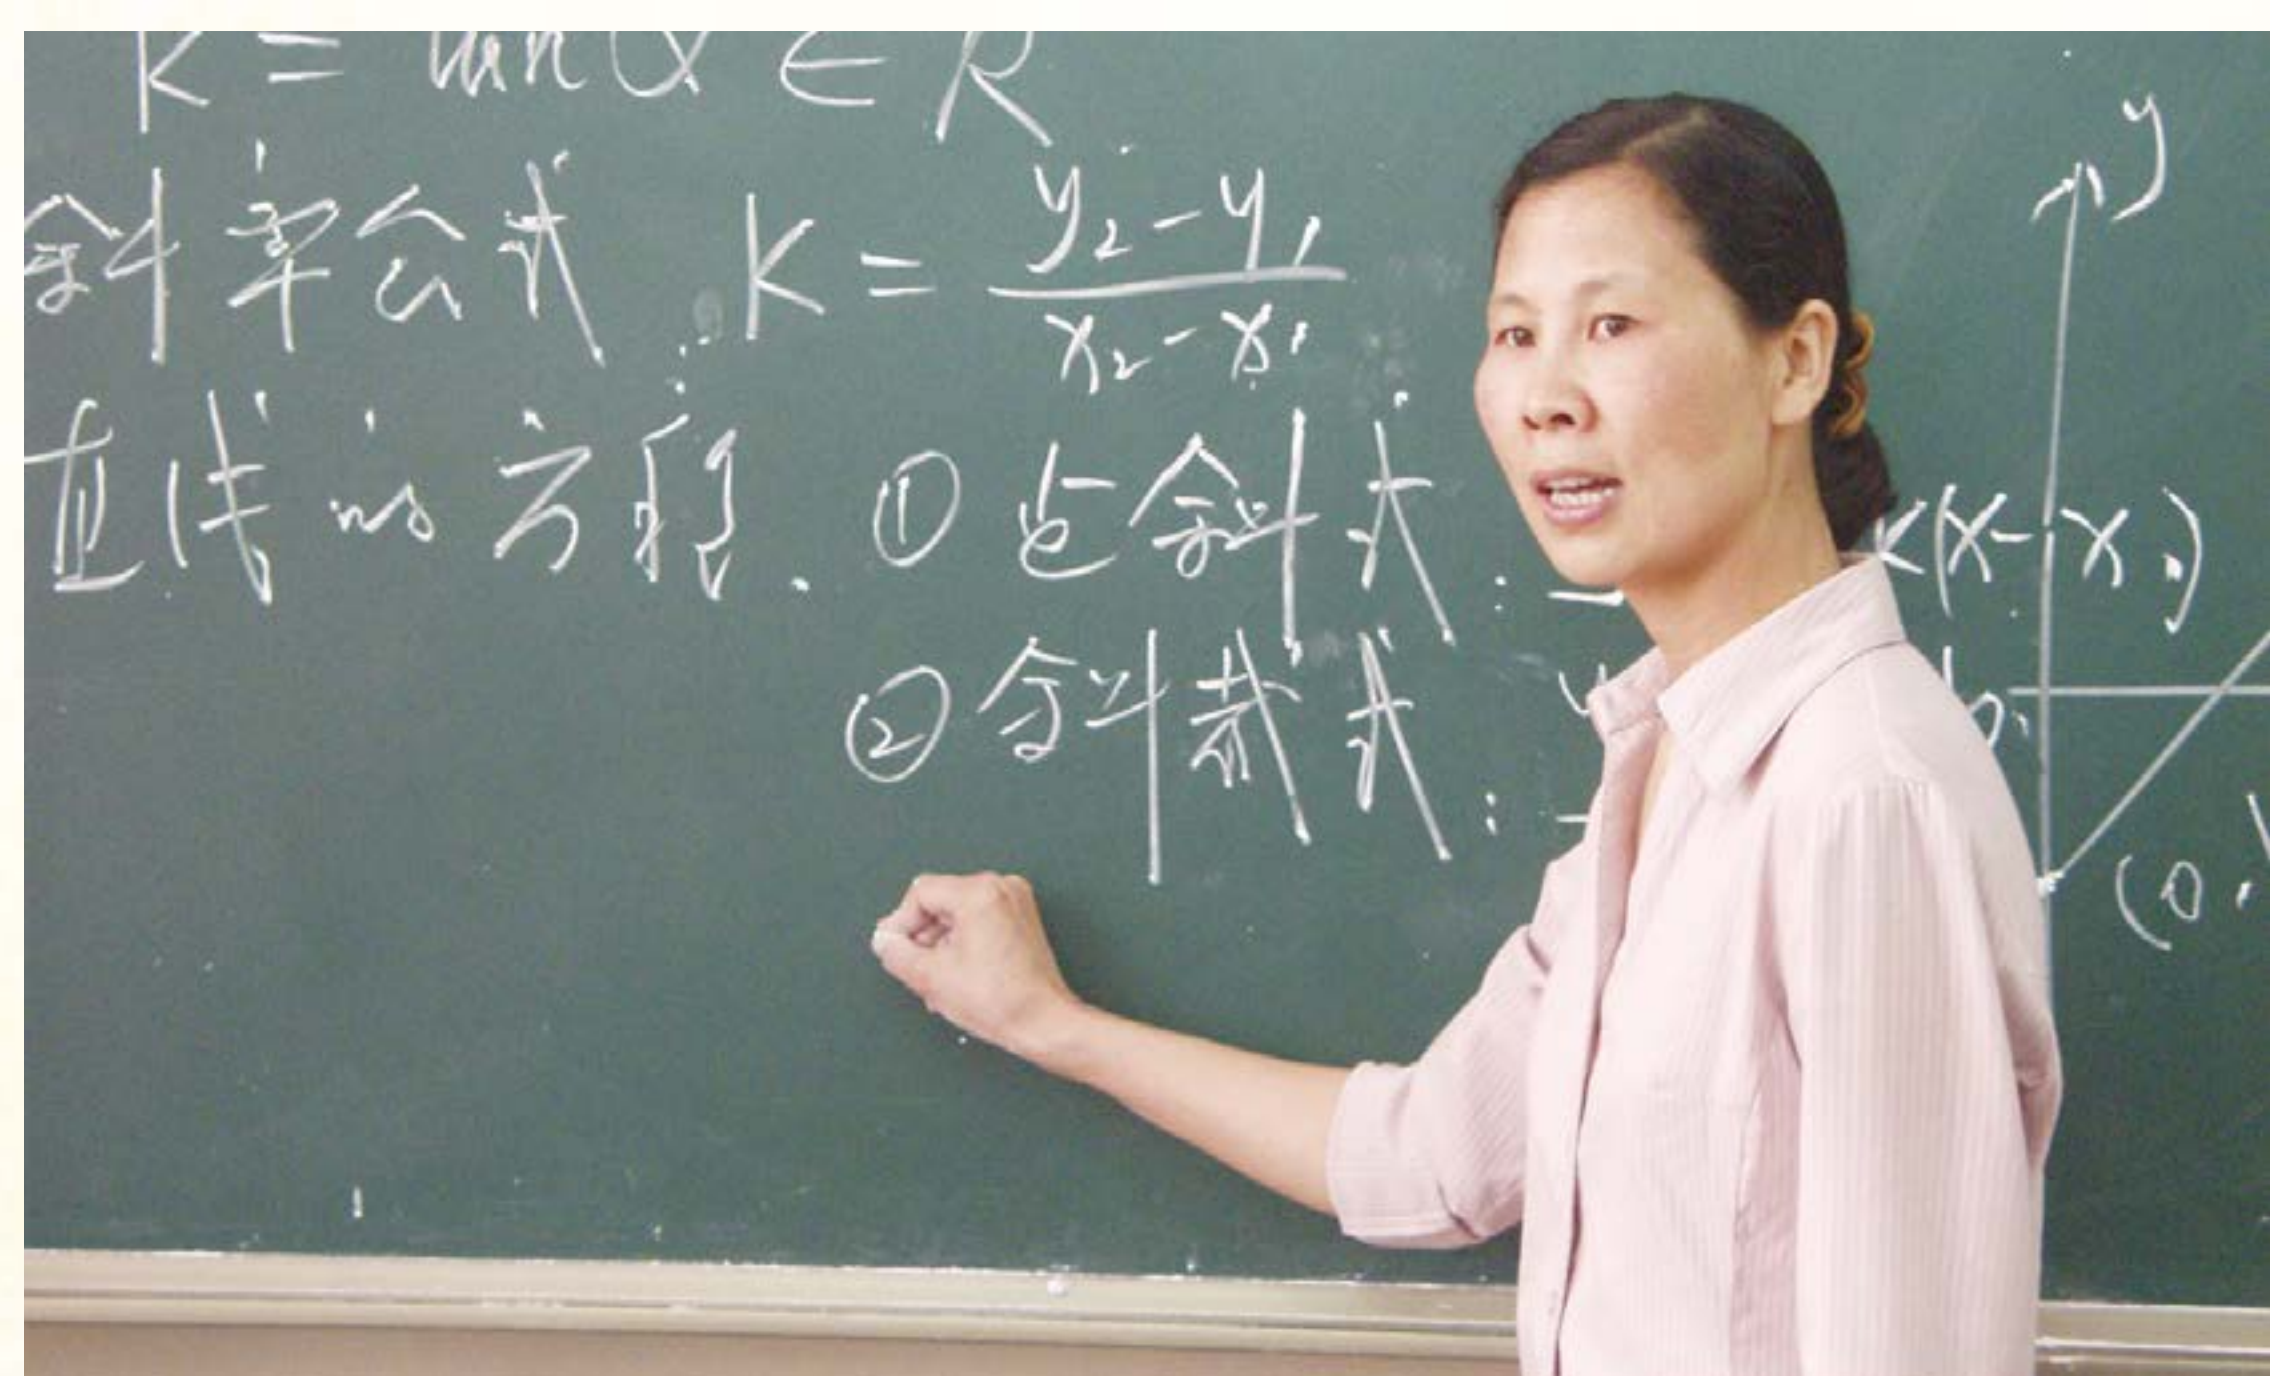 K = tan α ∈ R
斜率公式 K = \frac{y_2 - y_1}{x_2 - x_1}
直线的方程. ① 点斜式: K(x-x_1)
② 斜截式: y b.
y
(0.